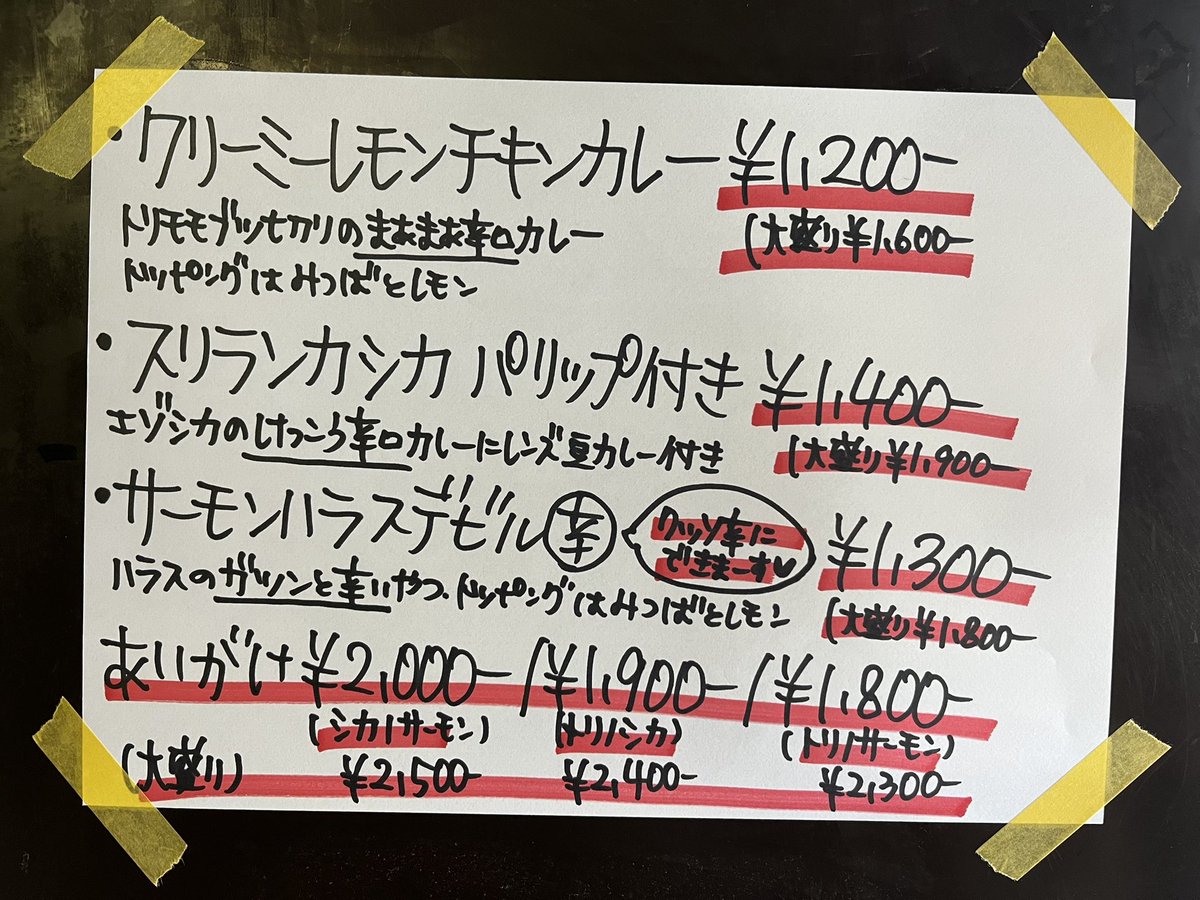 ・クリーミーレモンチキンカレー ¥1,200-
トリモモブツ切りのまあまあ辛口カレー (大盛り¥1,600-
トッピングはみつばとレモン
・スリランカシカ パリップ付き ¥1,400-
エゾシカのけっこう辛口カレーにレンズ豆カレー付き (大盛り¥1,900-
・サーモンハラスデビル 辛 クッソ辛に ¥1,300-
できまーす♥
ハラスのガツンと辛いやつ、トッピングはみつばとレモン (大盛り¥1,800-
あいがけ ¥2,000- / ¥1,900- / ¥1,800-
(シカ/サーモン) (トリ/シカ) (トリ/サーモン)
(大盛り) ¥2,500- ¥2,400- ¥2,300-